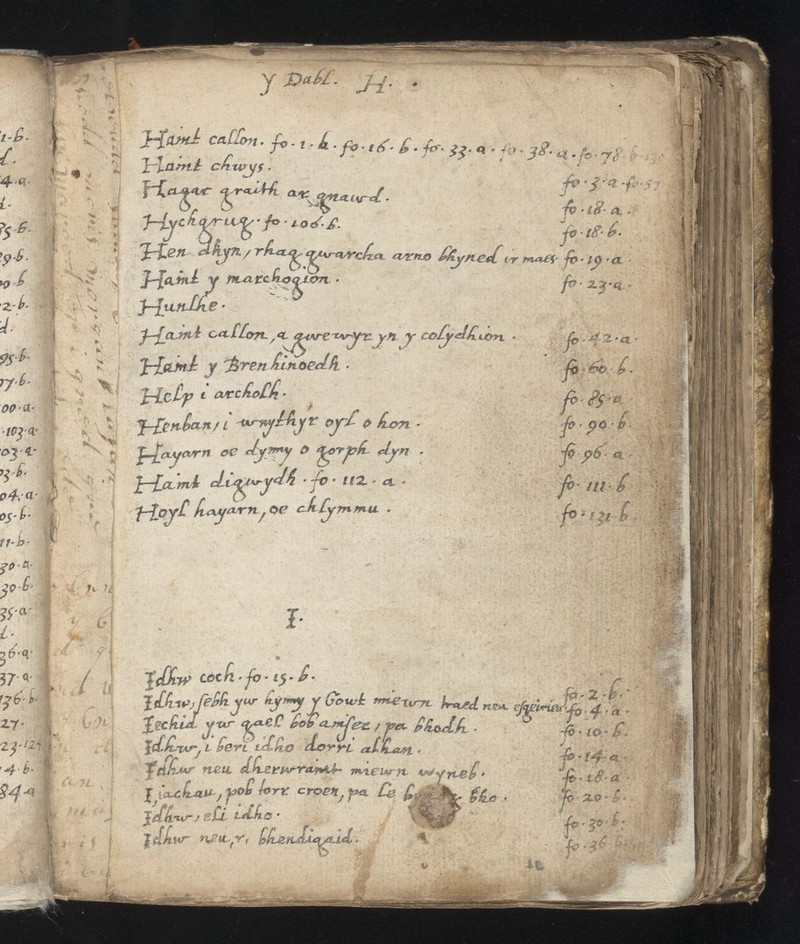 y Dabl. H.
Haint callon. fo. 1. b. fo. 16. b. fo. 33. a. fo. 38. a. fo. 78. b.
Haint chwys. fo. 3. a. fo. 57
Hagar graith ar gnawd. fo. 18. a.
Hychgrug. fo. 106. b. fo. 18. b.
Hen dhyn, rhag gwarcha arno bhyned ir maes fo. 19. a.
Haint y marchogion. fo. 23. a.
Hunlhe.
Haint callon, a gwewyr yn y colydhion. fo. 42. a.
Haint y Brenhinoedh. fo. 60. b.
Help i archolh. fo. 85. a.
Henban, i wnythyr oyl o hon. fo. 90. b.
Hayarn oe dynny o gorph dyn. fo. 96. a.
Haint digwydh. fo. 112. a. fo. 111. b
Hoyl hayarn, oe chlymmu. fo. 131. b
I.
Idhw coch. fo. 15. b. fo. 2. b.
Idhw, sebh yw hynny y Gowt miewn traed neu esgeirieu fo. 4. a.
Iechid yw gael bob amser, pa bhodh. fo. 10. b.
Idhw, i beri idho dorri alhan. fo. 14. a.
Idhw neu dherwraint miewn wyneb. fo. 18. a.
I, jachau, pob torr croen, pa le bho. fo. 20. b.
Idhw, eli idho. fo. 30. b.
Idhw neu, r, bhendigaid. fo. 36 b.
1. b.
d.
4. a.
35. b.
29. b.
00. b
2. b.
d.
95. b.
97. b.
00. a.
103. a
03. a.
03. b.
04. a.
05. b.
11. b.
30. a.
30. b.
35. a.
d.
36. a.
37. a.
136. b.
27.
4. b.
84. a